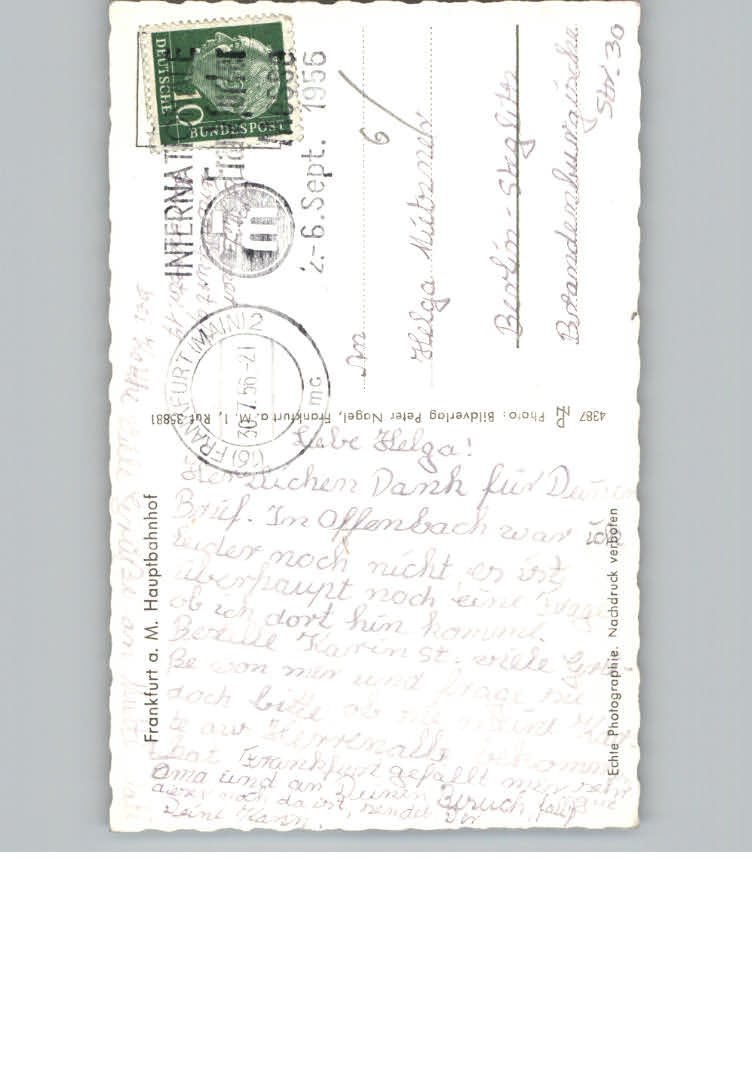 DEUTSCHE
10
BUNDESPOST
INTERNATIONALE
2.-6. Sept. 1956
(16) FRANKFURT (MAIN) 2
30.7.56-21
mc
An
Helga
Berlin - Steglitz
Brandenburgische
Str. 30
6
4387 Photo: Bildverlag Peter Nagel, Frankfurt a. M. 1, Ruf 35881
Frankfurt a. M. Hauptbahnhof
Echte Photographie. Nachdruck verboten
Liebe Helga!
Herzlichen Dank für Deinen
Brief. Im Offenbach war ich
leider noch nicht, es ist
überhaupt noch eine Frage
ob ich dort hin komme.
Bestelle Karin St. viele Grü-
ße von mir und frage sie
doch bitte ob sie meine Kar-
te aus Herrenalb bekommen
hat. Frankfurt gefällt mir sehr
Oma und an Deinen zurück, falls
dieser noch da ist, sendet Dir
Deine Karin.